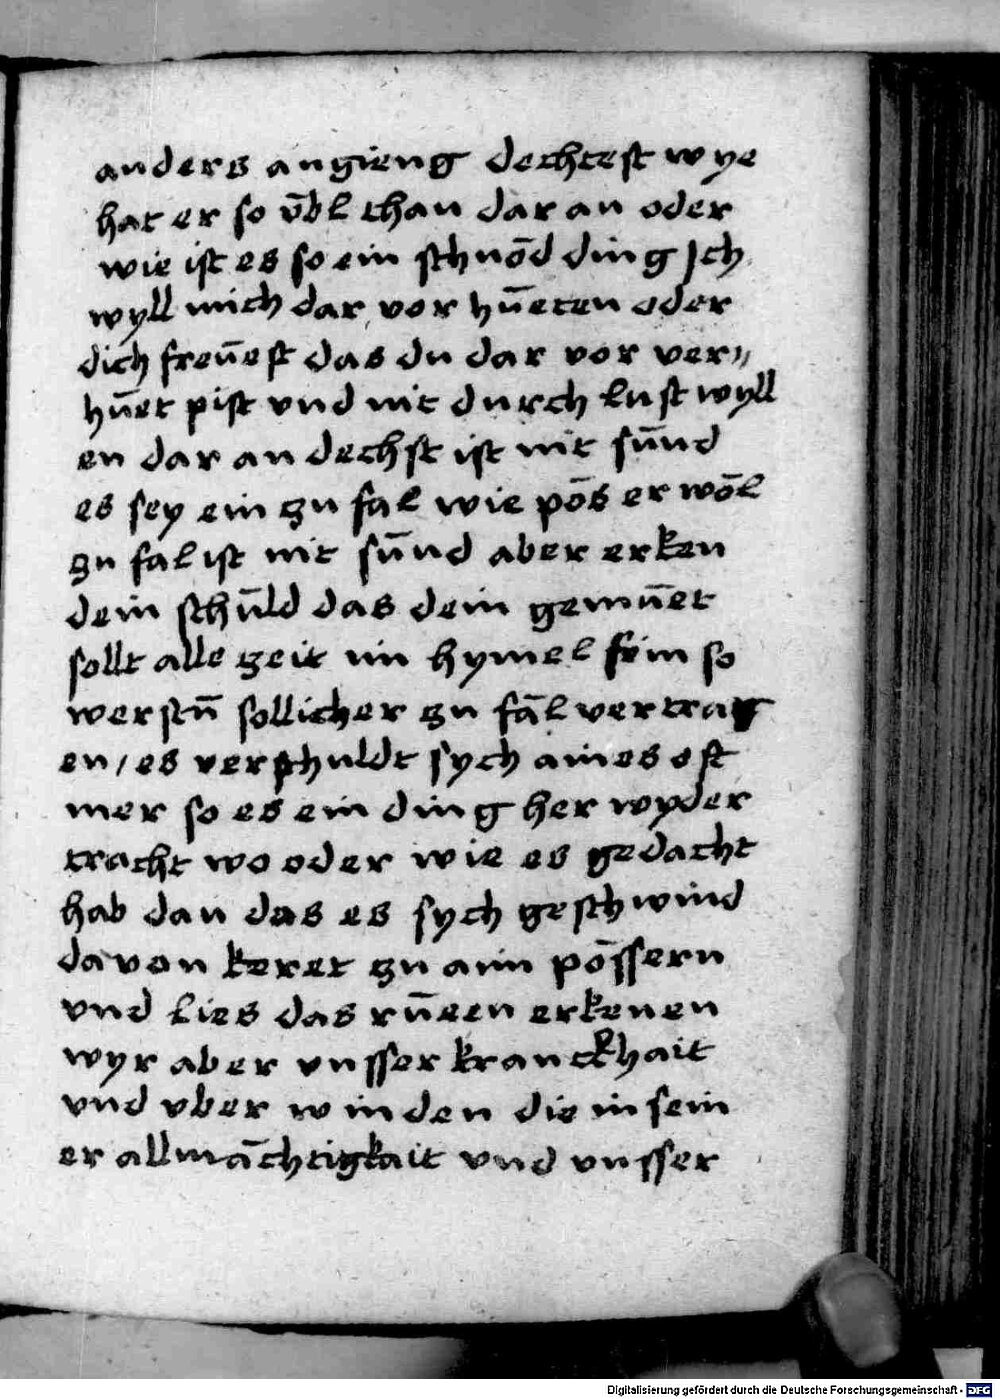 anders angieng dechtest wye
hat er so v̄bl than dar an oder
wie ist es so ein schnōd ding Jch
wyll mich dar vor hūeten oder
dich freūest das du dar vor ver〃
hūet pist vnd nit durch lust wyll
en dar an dechst ist nit sūnd
es sey ein zu fal wie pōs er wōl
zu fal ist nit sūnd aber erken
dein schūld das dein gemūet
sollt alle zeit im hymel sein so
werstū sollicher zu fāl vertrag
en / es verschuldt sych aines oft
mer so es ein ding her wyder
tracht wo oder wie es gedacht
hab dan das es sych geschwind
da von keret zu aim pōssern
vnd lies das rūeen erkenen
wyr aber vnsser kranckhait
vnd vber winden die in sein
er allmāchtigkait vnd vnsser
Digitalisierung gefördert durch die Deutsche Forschungsgemeinschaft - DFG